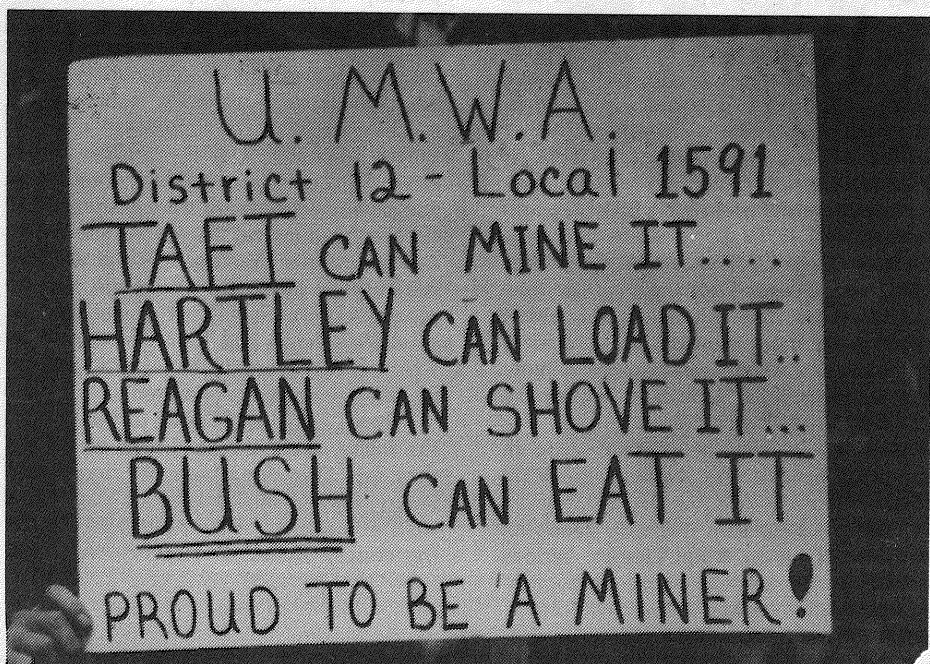 U.M.W.A.
District 12 - Local 1591
TAFT CAN MINE IT....
HARTLEY CAN LOAD IT..
REAGAN CAN SHOVE IT...
BUSH CAN EAT IT
PROUD TO BE A MINER!